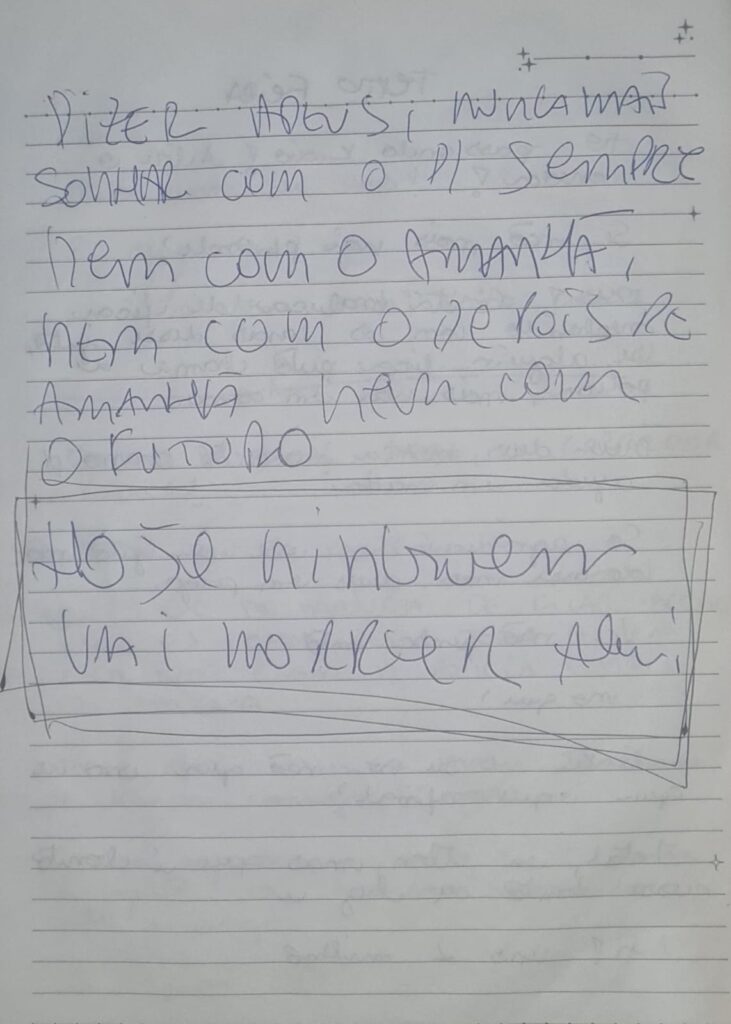 DIZER ADEUS, NUNCA MAIS
SONHAR COM O P/ SEMPRE
NEM COM O AMANHÃ,
NEM COM O DEPOIS DE
AMANHÃ NEM COM
O FUTURO
HOJE NINGUEM
VAI MORRER AQUI